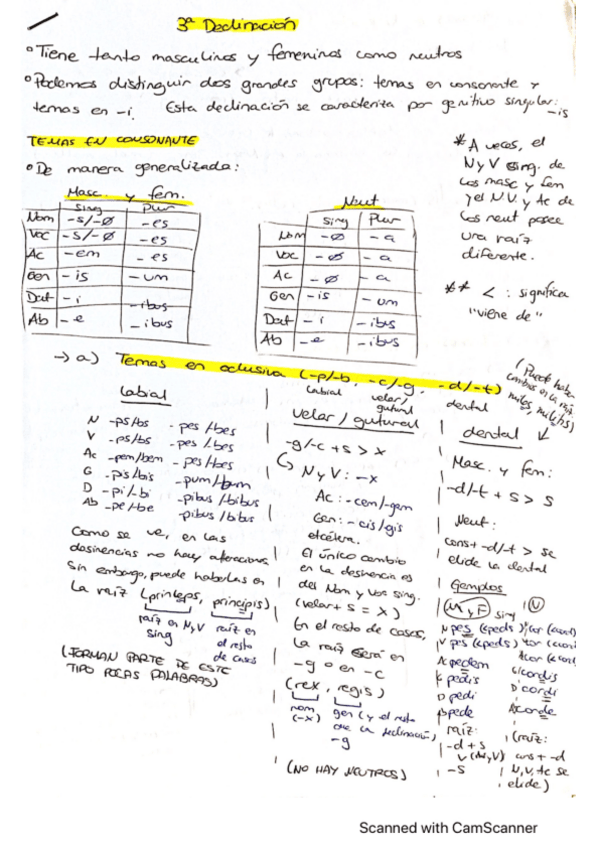 3ª Declinación
° Tiene tanto masculinos y femeninos como neutros
° Podemos distinguir dos grandes grupos: temas en consonante y
temas en -i. Esta declinación se caracteriza por genitivo singular: -is
TEMAS EN CONSONANTE
° De manera generalizada:
Masc. y fem.
sing Plur
Nom -s/-Ø -es
Voc -s/-Ø -es
Ac -em -es
Gen -is -um
Dat -i -ibus
Ab -e -ibus
Neut
sing Plur
Nom -Ø -a
Voc -Ø -a
Ac -Ø -a
Gen -is -um
Dat -i -ibus
Ab -e -ibus
* A veces, el
N y V sing. de
los masc y fem
y el N, V y Ac de
los neut posee
una raíz
diferente.
** < : significa
"viene de"
→ a) Temas en oclusiva (-p/-b, -c/-g, -d/-t)
labial velar/gutural dental
(Puede haber
cambios en la raíz
miles, militis)
Labial
N -ps/bs -pes/bes
V -ps/bs -pes/bes
Ac -pem/bem -pes/bes
G -pis/bis -pum/bum
D -pi/-bi -pibus/bibus
Ab -pe/be -pibus/bibus
Como se ve, en las
desinencias no hay alteraciones
Sin embargo, puede haberlas en
la raíz (princeps, principis)
raíz en N,V sing
raíz en el resto de casos
(FORMAN PARTE DE ESTE
TIPO POCAS PALABRAS)
velar/gutural
-g/-c + s > x
N y V: -x
Ac: -cem/-gem
Gen: -cis/gis
etcétera.
El único cambio
en la desinencia es
del Nom y Voc sing.
(velar + s = x)
En el resto de casos,
la raíz será en
-g o en -c
(rex, regis)
nom (-x)
gen (y el resto
de la declinación)
-g
(NO HAY NEUTROS)
dental
Masc. y fem:
-d/-t + s > s
Neut:
cons + -d/-t > se
elide la dental
Ejemplos
M y F sing
N pes (<peds)
V pes (<peds)
Ac pedem
pedis
D pedi
pede
raíz:
-d + s
(N,V)
-s
cor
cor
cor
G cordis
D cordi
corde
(raíz:
cons + -d
N, V, Ac se
elide)
Scanned with CamScanner